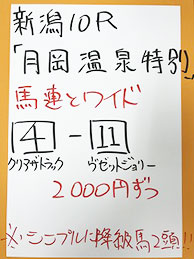 新潟10R
「月岡温泉特別」
馬連とワイド
4 - 11
クリアザトラック ヴゼットジョリー
2000円ずつ
※シンプルに降級馬2頭!!